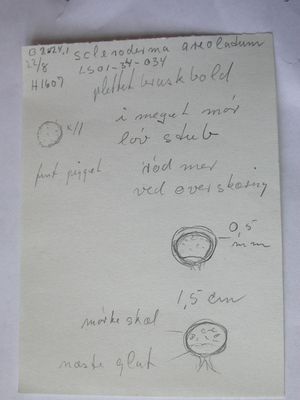 22/8
scleroderma areolatum
H1607
LS01-34-034
plettet bruskbold
i meget mør
løv stub
fint pigget
rød mer
ved overskæring
0,5
mm
1,5 cm
mørke skæl
næste glat